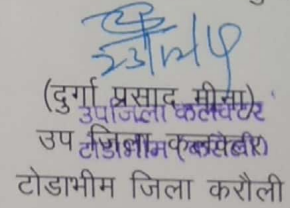 (दुर्गा प्रसाद मीना)
उपजिला कलक्टर
उप जिला कलक्टर
टोडाभीम (करौली)
टोडाभीम जिला करौली